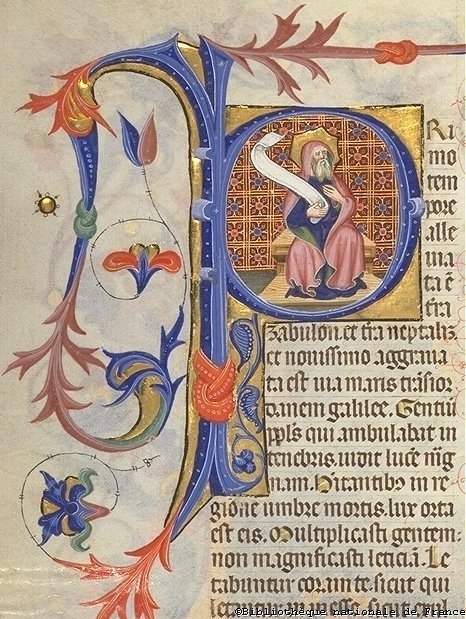 P
Ri
mo
tem
pore
alle
uia
ta ē
t̄ra
zabulon. et t̄ra neptaliʒ.
et nouissimo aggraua
ta est uia maris trāsior
danem galilee. Gentiū
ppl̄s qui ambulabat in
tenebris. uidit lucē mag
nam. Hitantibꝰ in re
gione umbre mortis. lux orta
est eis. Multiplicasti gentem.
non magnificasti leticiā. Le
tabuntur coram te sicut qui
letantur in messe. sicut exul
©Bibliothèque nationale de France